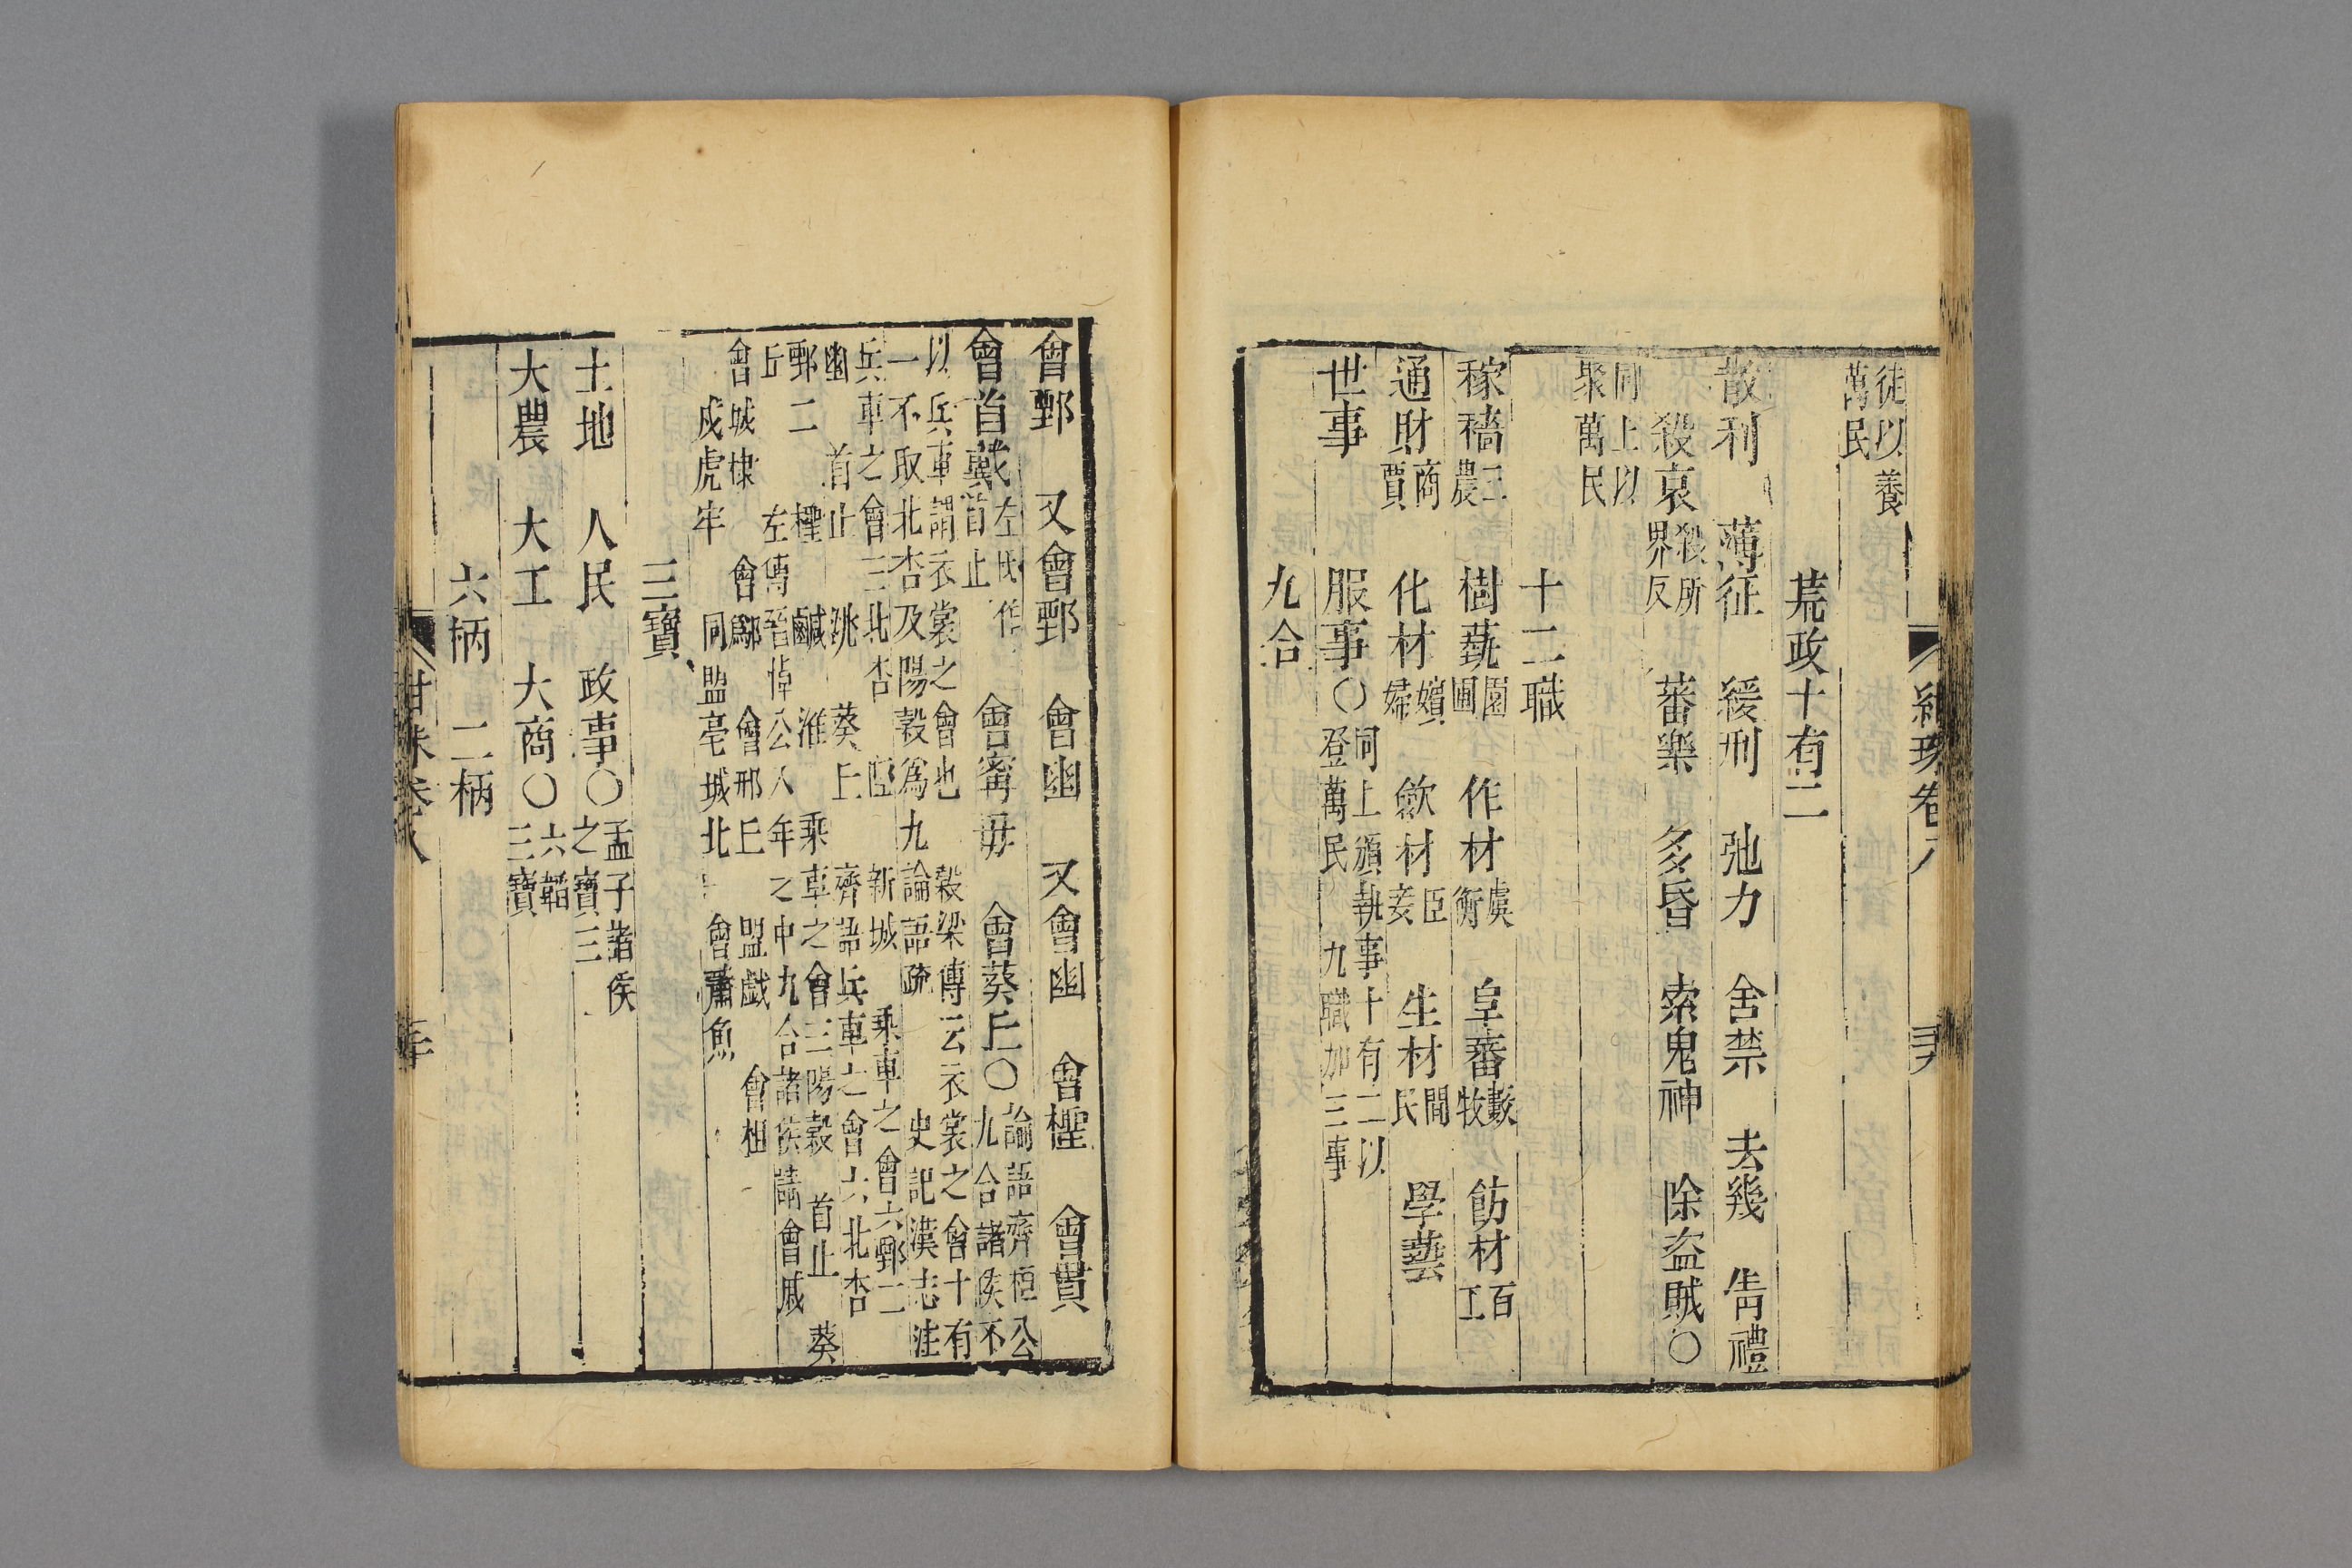 徒以養
萬民
荒政十有二
散利　薄征　緩刑　弛力　舍禁　去幾　眚禮
殺哀殺所界反　蕃樂　多昏　索鬼神　除盜賊○
同上以
聚萬民
十二職
稼穡三農　樹蓺園圃　作材虞衡　阜蕃藪牧　飭材百工
通財商賈　化材嬪婦　斂材臣妾　生材閒民　學藝
世事　服事○同上頒執事十有二以登萬民　九職加三事
九合
會鄄　又會鄄　會幽　又會幽　會檉　會貫
會首戴左氏作首止　會甯毋　會葵丘○論語齊桓公九合諸侯不
以兵車謂衣裳之會也　穀梁傳云衣裳之會十有
一不取北杏及陽穀為九論語疏　史記漢志注
兵車之會三北杏　　新城　乘車之會六鄄二
幽　首止　洮　葵丘　齊語兵車之會六北杏
鄄二　檉　鹹　淮　乘車之會三陽穀　首止　葵
丘　左傳晉悼公八年之中九合諸侯謂會戚
會城棣　會鄬　會邢丘　盟戲　會柤
戍虎牢　同盟亳城北　會蕭魚
三寶
土地　人民　政事○孟子諸侯之寶三
大農　大工　大商○六韜三寶
六柄　二柄